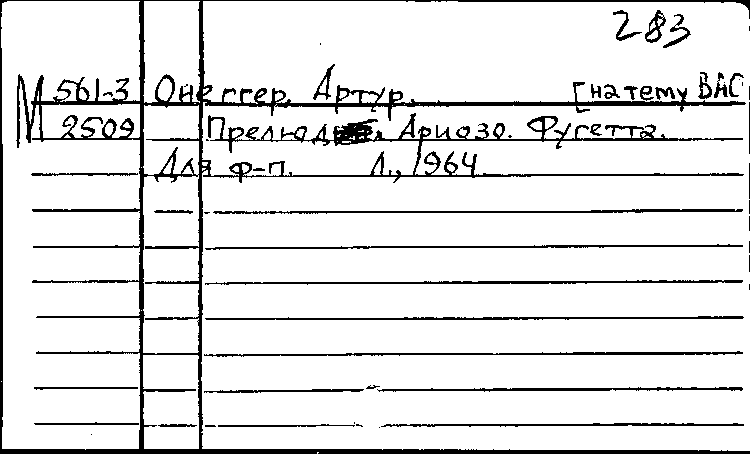 283
М 561-3 Онеггер, Артур. [на тему BAC
2509 Прелюдия. Ариозо. Фугетта.
Для ф-п. Л., 1964